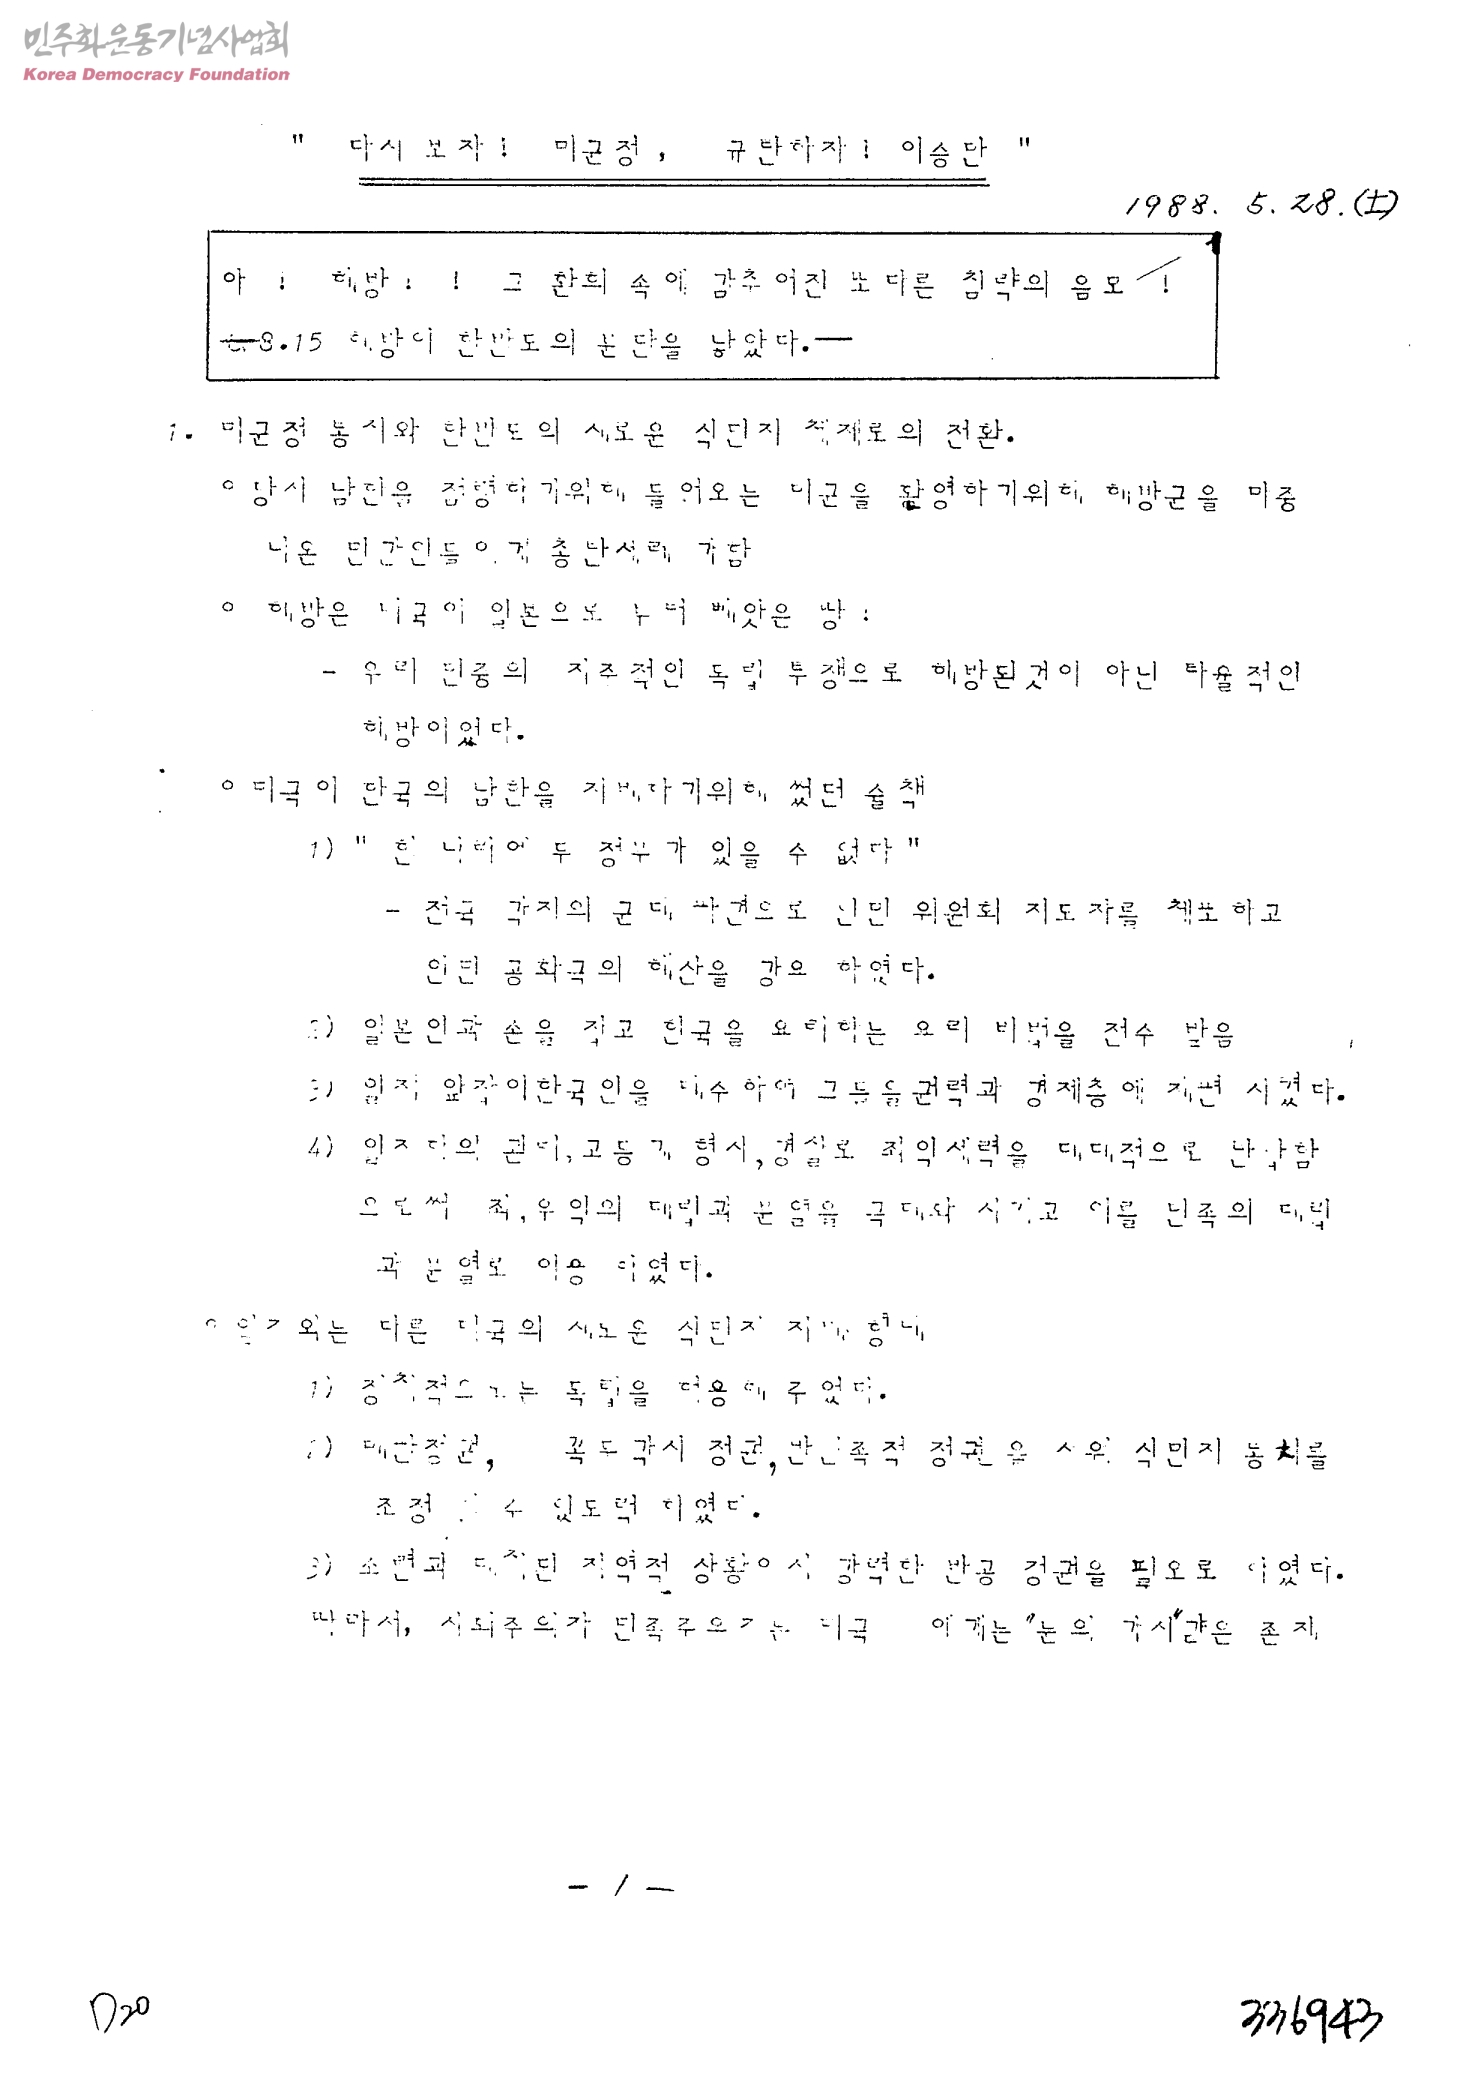 민주화운동기념사업회
Korea Democracy Foundation
" 다시 보자! 미군정, 규탄하자! 이승만 "
1988. 5. 28.(土)
아 ! 해방! ! 그 환희 속에 감추어진 또 다른 침략의 음모 !
8.15 해방이 한반도의 분단을 낳았다.—
1. 미군정 통치와 한반도의 새로운 식민지 체제로의 전환.
o 당시 남한을 점령하기위해 들어오는 미군을 환영하기위해 해방군을 마중
나온 민간인들에게 총탄세례 가함
o 해방은 미국이 일본으로 부터 빼앗은 땅!
- 우리 민중의 자주적인 독립 투쟁으로 해방된것이 아닌 타율적인
해방이었다.
o 미국이 한국의 남한을 지배하기위해 썼던 술책
1) " 한 나라에 두 정부가 있을 수 없다"
- 전국 각지의 군대 파견으로 인민 위원회 지도자를 체포하고
인민 공화국의 해산을 강요 하였다.
2) 일본인과 손을 잡고 한국을 요리하는 요리 비법을 전수 받음
3) 일제 앞잡이한국인을 매수하여 그들을권력과 경제층에 재편 시켰다.
4) 일제하의 관리,고등계 형사,경찰로 좌익세력을 대대적으로 탄압함
으로써 좌,우익의 대립과 분열을 극대화 시키고 이를 민족의 대립
과 분열로 이용 하였다.
o 일제와는 다른 미국의 새로운 식민지 지배 형태
1) 정치적으로는 독립을 허용해 주었다.
2) 매판정권, 꼭두각시 정권,반민족적 정권을 세워 식민지 통치를
조정 할 수 있도록 하였다.
3) 소련과 대치된 지역적 상황에서 강력한 반공 정권을 필요로 하였다.
따라서, 사회주의가 민족주의가는 미국 에게는 "눈의 가시"같은 존재
- 1 -
D20
336943